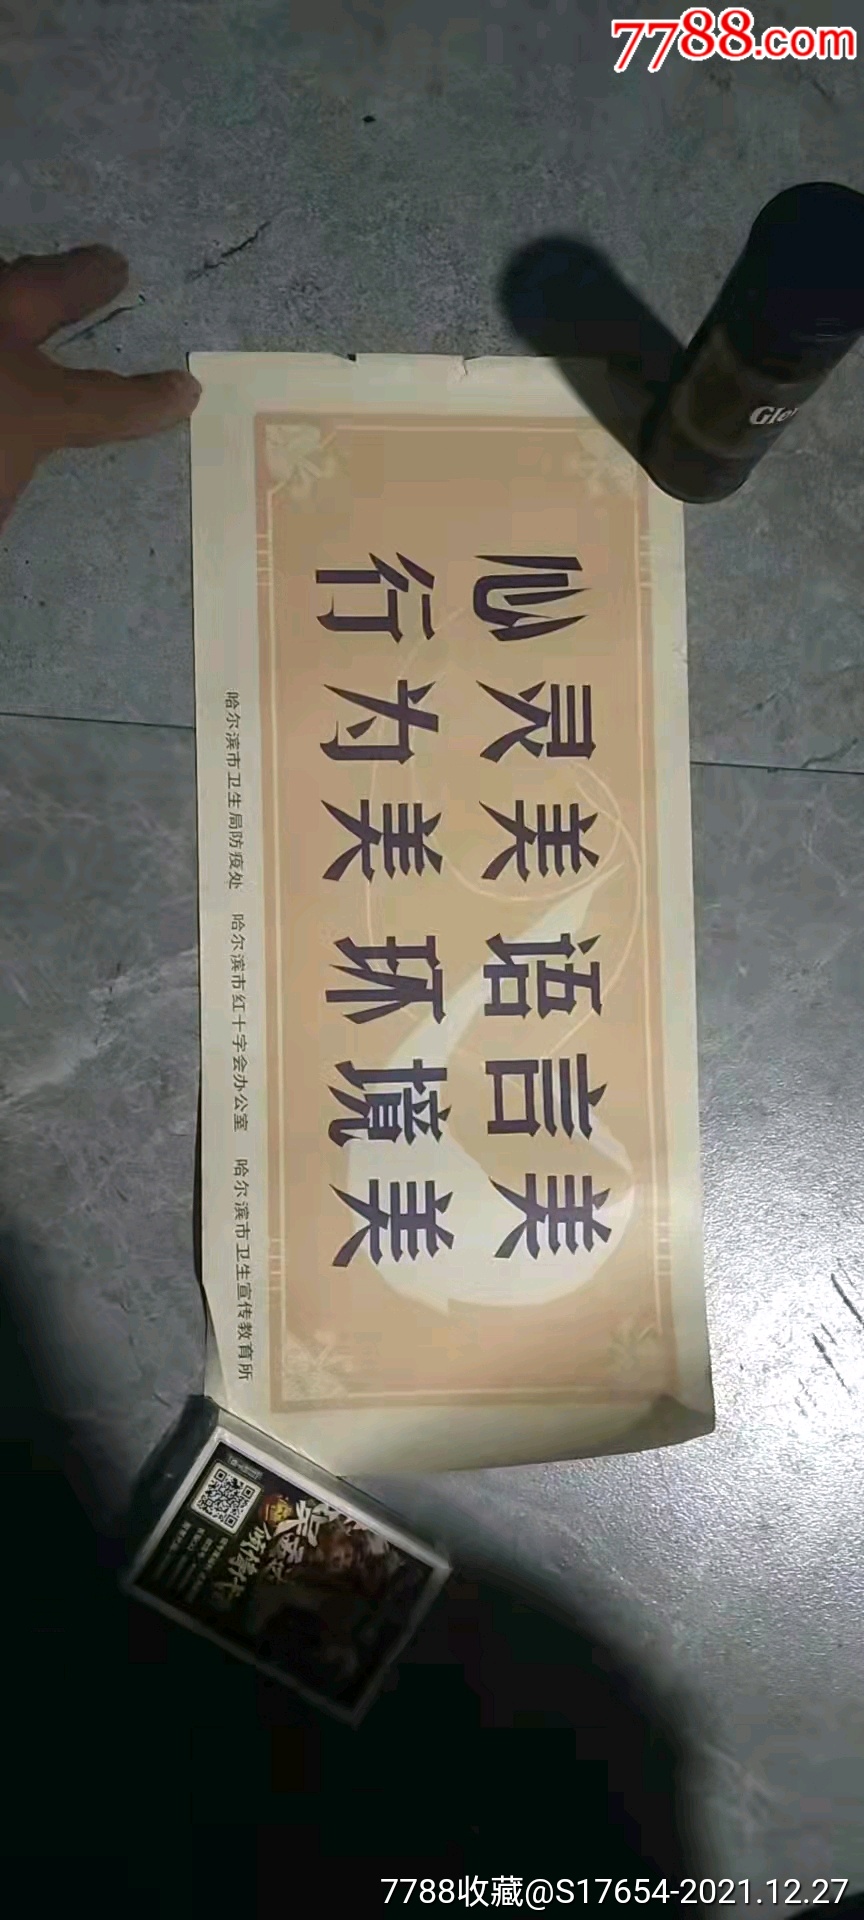 7788.com
Gle
心灵美语言美
行为美环境美
哈尔滨市卫生局防疫处 哈尔滨市红十字会办公室 哈尔滨市卫生宣传教育所
7788收藏@S17654-2021.12.27